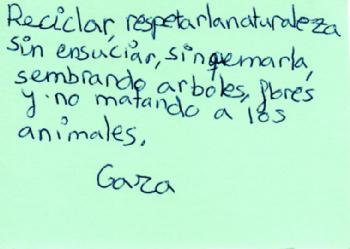 Reciclar, respetar la naturaleza
sin ensuciar, sin qemarla,
sembrando arboles, flores
y no matando a los
animales.
Gara